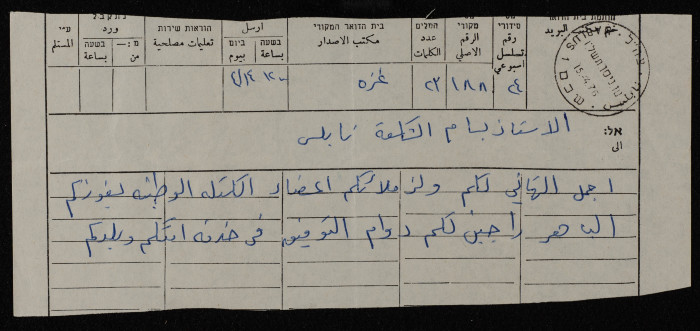 חותמת בית הדואר
البريد
מס' סידורי
رقم تسلسل اسبوعي
הרقم מקורי
الرقم الاصلي
המלים
عدد الكلمات
בית הדואר המקורי
مكتب الاصدار
ارسل
ביום
بيوم
בשעה
بساعة
הוראות שירות
تعليمات مصلحية
ورد
מ:—
من
בשעה
بساعة
ע״י
المستلم
٢٤
١٨٨
٢٣
غزه
١٤/
NABLUS
15.4.76
אל:
الى
الاستاذ بسام الشكعة نابلس
اجمل التهاني لكم ولزملائكم اعضاء الكتله الوطنيه بفوزكم
الباهر راجين لكم دوام التوفيق في خدمة امتكم وبلدكم